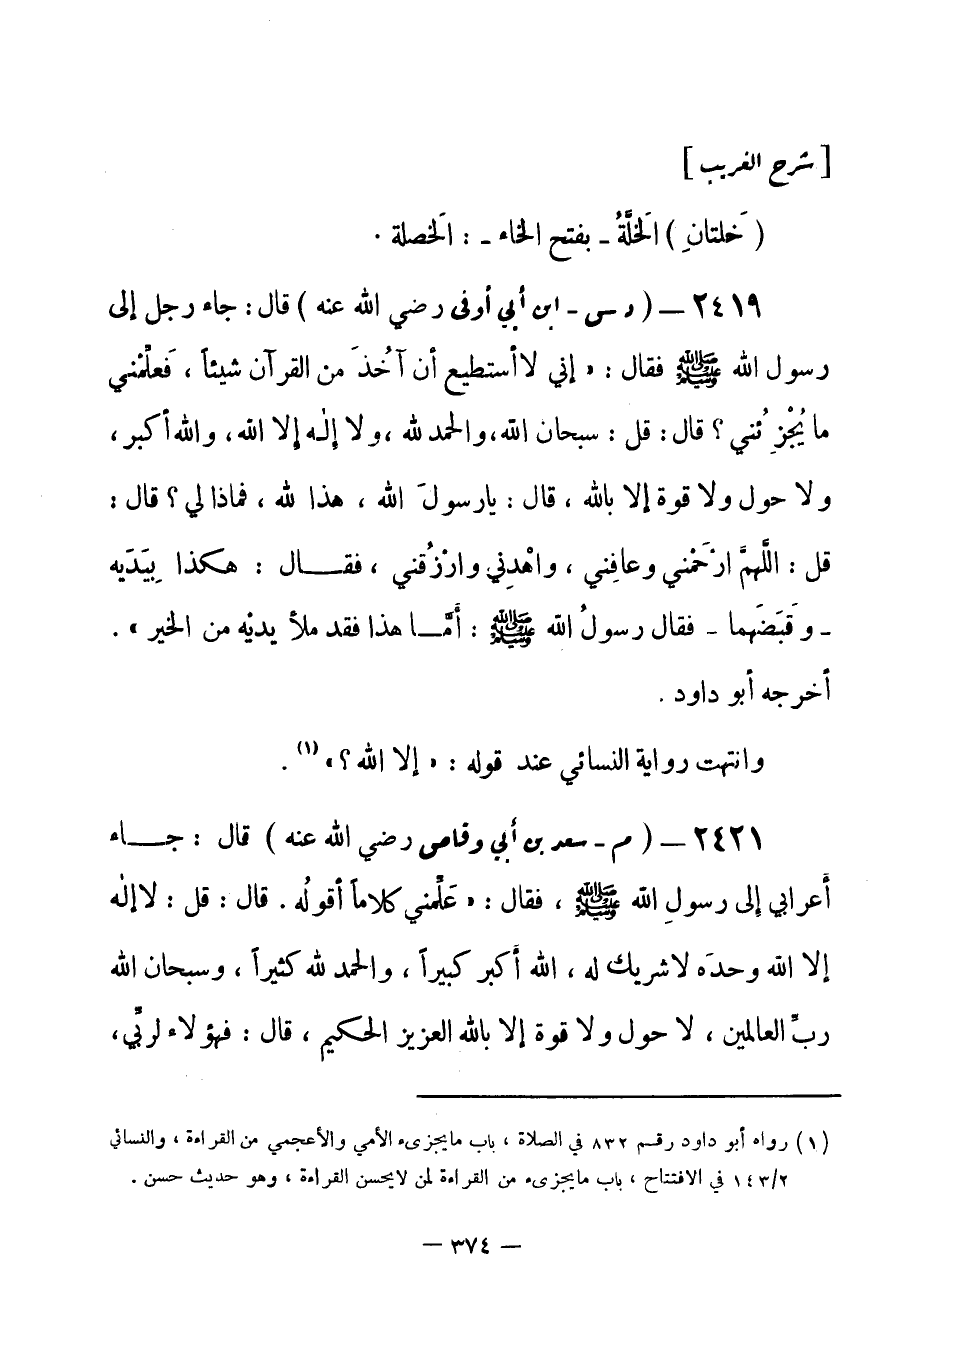 [ شرح الغريب ]
( خَلتانِ ) الخَلَّةُ ـ بفتح الخاء ـ : الخَصلة .
٢٤١٩ ــ ( د س ـ ابن أبي أوفى رضي الله عنه ) قال : جاء رجل إلى
رسول الله ﷺ فقال : « إني لا أستطيع أن آخُذَ من القرآن شيئاً ، فَعلِّمْني
ما يُجْزِ ئُني ؟ قال : قل : سبحان الله ، والحمد لله ، ولا إلٰه إلا الله ، والله أكبر ،
ولا حول ولا قوة إلا بالله ، قال : يارسولَ الله ، هذا لله ، فماذا لي ؟ قال :
قل : اللَّهمَّ ارْحَمْني وعافِني ، واهْدِني وارْزُقني ، فقــال : هكذا بِيَدَيه
ـ وقَبَضَهما ـ فقال رسولُ الله ﷺ : أمَّــا هذا فقد ملأ يديْه من الخير » .
أخرجه أبو داود .
وانتهت رواية النسائي عند قوله : « إلا الله ؟ » (١) .
٢٤٢١ ــ ( م ـ سعد بن أبي وقاص رضي الله عنه ) قال : جــاء
أعرابي إلى رسولِ الله ﷺ ، فقال : « عَلِّمني كلاماً أقولُه . قال : قل : لا إلٰه
إلا الله وحدَه لا شريك له ، الله أكبر كبيراً ، والحمد لله كثيراً ، وسبحان الله
ربِّ العالمين ، لا حول ولا قوة إلا بالله العزيز الحكيم ، قال : فهؤلاء لربِّي ،
(١) رواه أبو داود رقم ٨٣٢ في الصلاة ، باب مايجزىء الأمي والأعجمي من القراءة ، والنسائي
٢/١٤٣ في الافتتاح ، باب مايجزىء من القراءة لمن لايحسن القراءة ، وهو حديث حسن .
— ٣٧٤ —